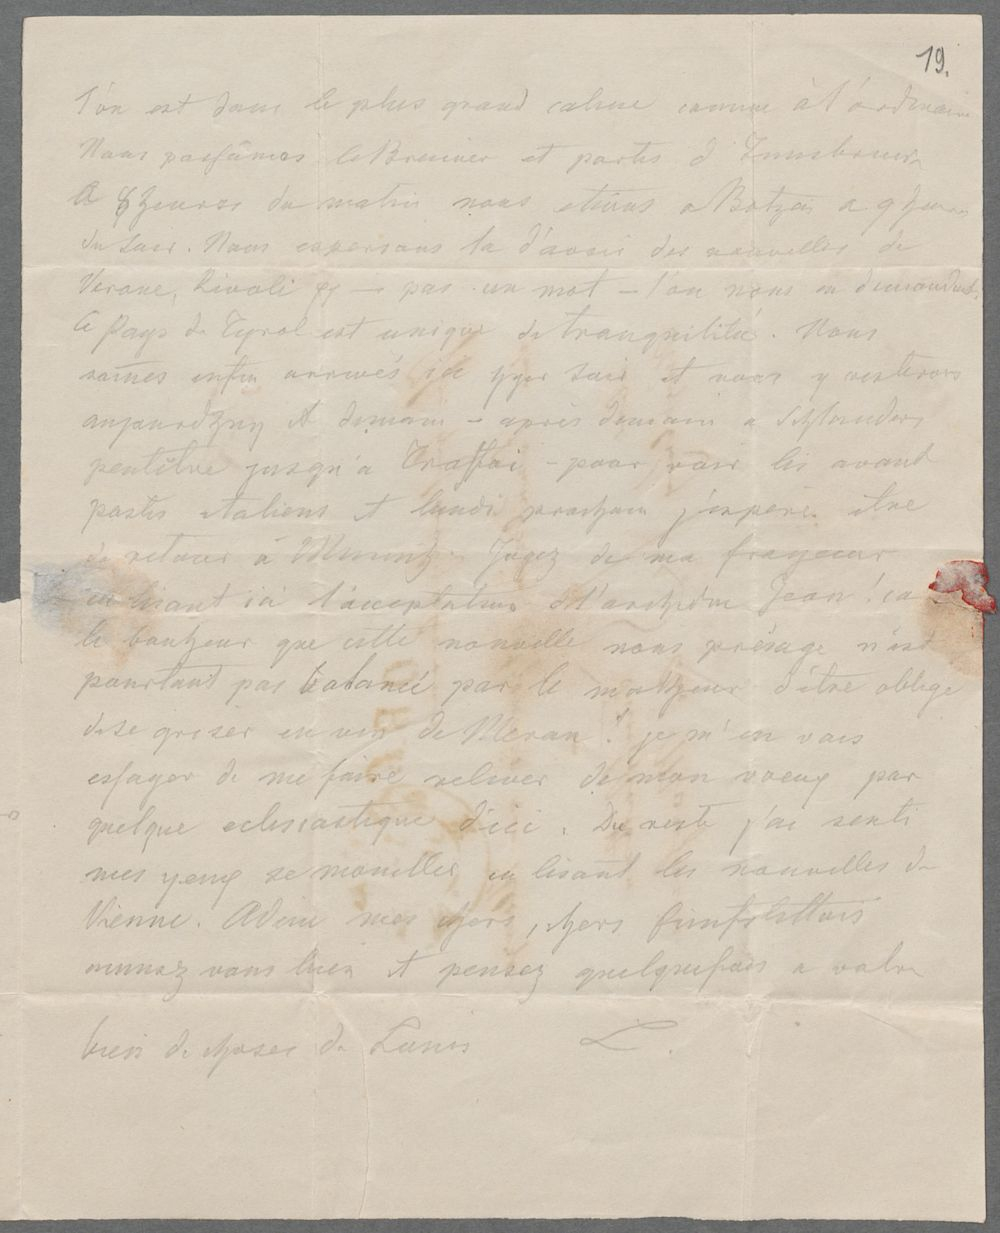 19.
l'on est dans le plus grand calme comme à l'ordinaire
Nous passâmes le Brenner et partis d'Innsbruck
a 8 heures du matin nous etions a Botzen a 9 heures
du soir. Nous esperions la d'avoir des nouvelles de
Verone, Rivoli – pas un mot – l'on nous en demandait.
Ce Pays de Tyrol est unique de tranquilité. Nous
enfin arrivés ici hyer soir et nous y resterons
aujourdhuy et demain – après demain a Schlanders
peutêtre jusqu'a Traffoi – pour voir les avant
postes italiens et lundi prochain j'espère être
de retour à Jugez de ma frayeur
en lisant ici l'acceptation de l'archiduc Jean! car
le bonheur que cette nouvelle nous présage n'est
pourtant pas balancé par le malheur d'être obligé
de se griser en vin de Meran! je m'en vais
essayer de me faire relever de mon voeux par
quelque eclesiastique d'ici. Du reste j'ai senti
mes yeux se mouiller en lisant les nouvelles de
Vienne. Adieu mes chers, chers
vous bien et pensez quelquefois a votre
bien de choses de Louis L.